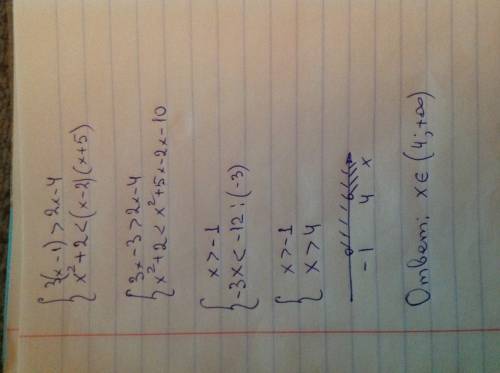 { 3(x-1) > 2x-4
x²+2 < (x-2)(x+5)
{ 3x-3 > 2x-4
x²+2 < x²+5x-2x-10
{ x > -1
-3x < -12 : (-3)
{ x > -1
x > 4
-1 4 x
Ответ: x ∈ (4; +∞)